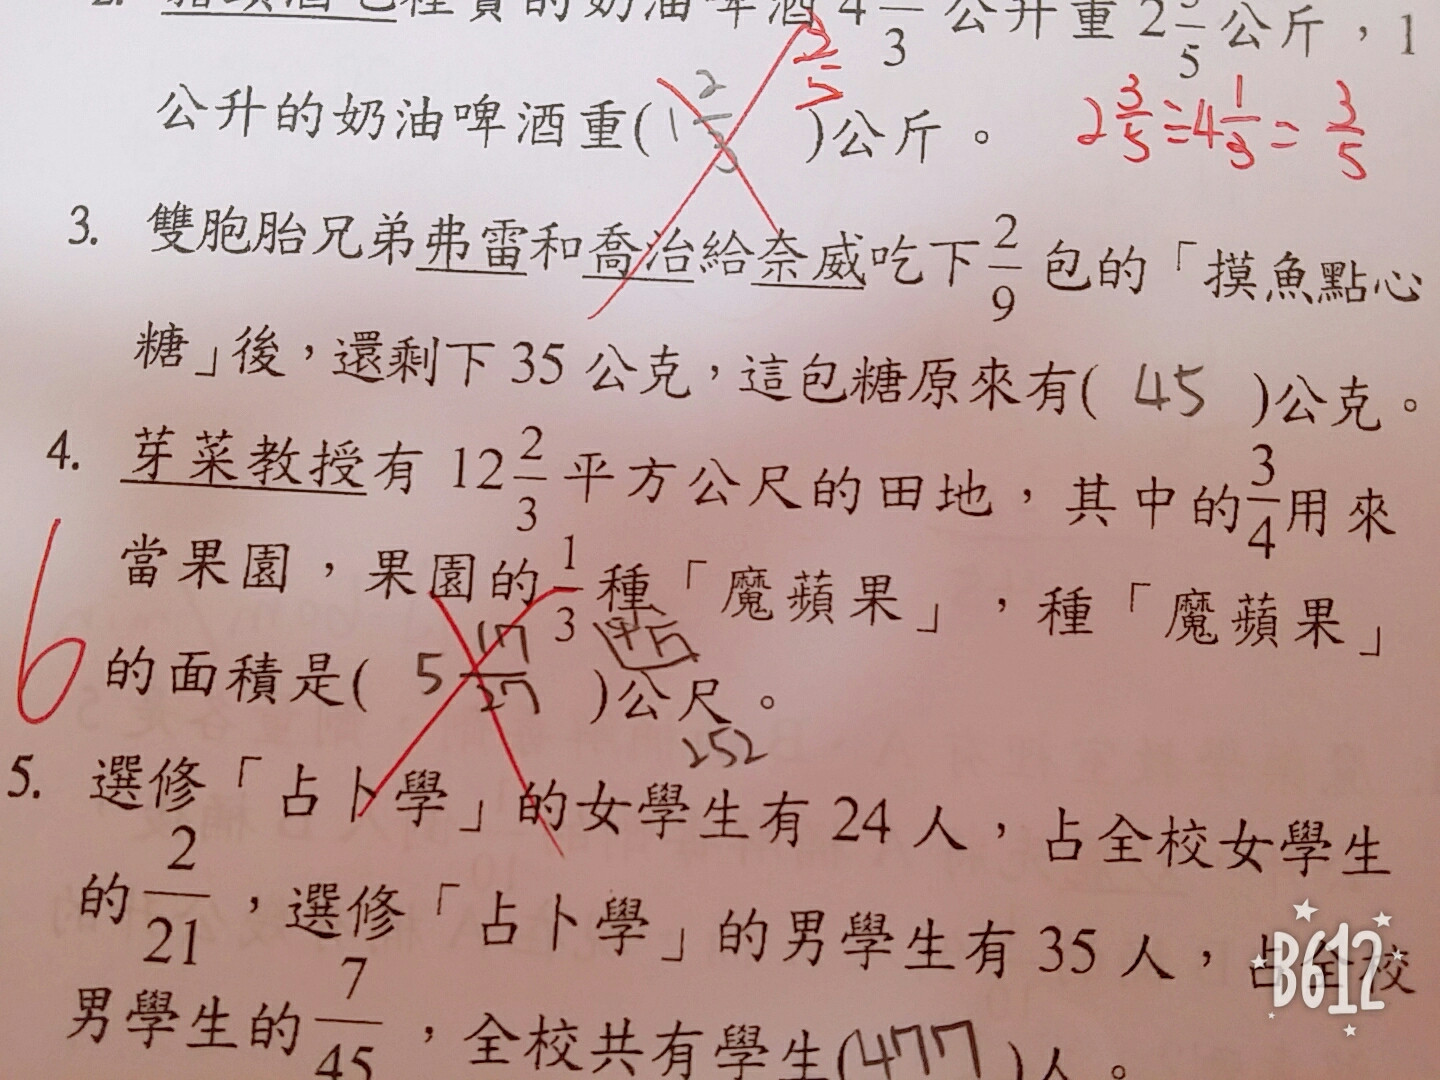 2. 豬頭酒吧裡賣的奶油啤酒 4 /3 公升重 2 3/5 公斤，1
公升的奶油啤酒重( 1 2/3 )公斤。 3/5
2 3/5 ÷ 4 1/3 = 3/5
3. 雙胞胎兄弟弗雷和喬治給奈威吃下 2/9 包的「摸魚點心
糖」後，還剩下 35 公克，這包糖原來有( 45 )公克。
4. 芽菜教授有 12 2/3 平方公尺的田地，其中的 3/4 用來
當果園，果園的 1/3 種「魔蘋果」，種「魔蘋果」
的面積是( 5 17/27 )公尺。
6
252
5. 選修「占卜學」的女學生有 24 人，占全校女學生
的 2/21，選修「占卜學」的男學生有 35 人，占全校
男學生的 7/45，全校共有學生(477)人。
B612